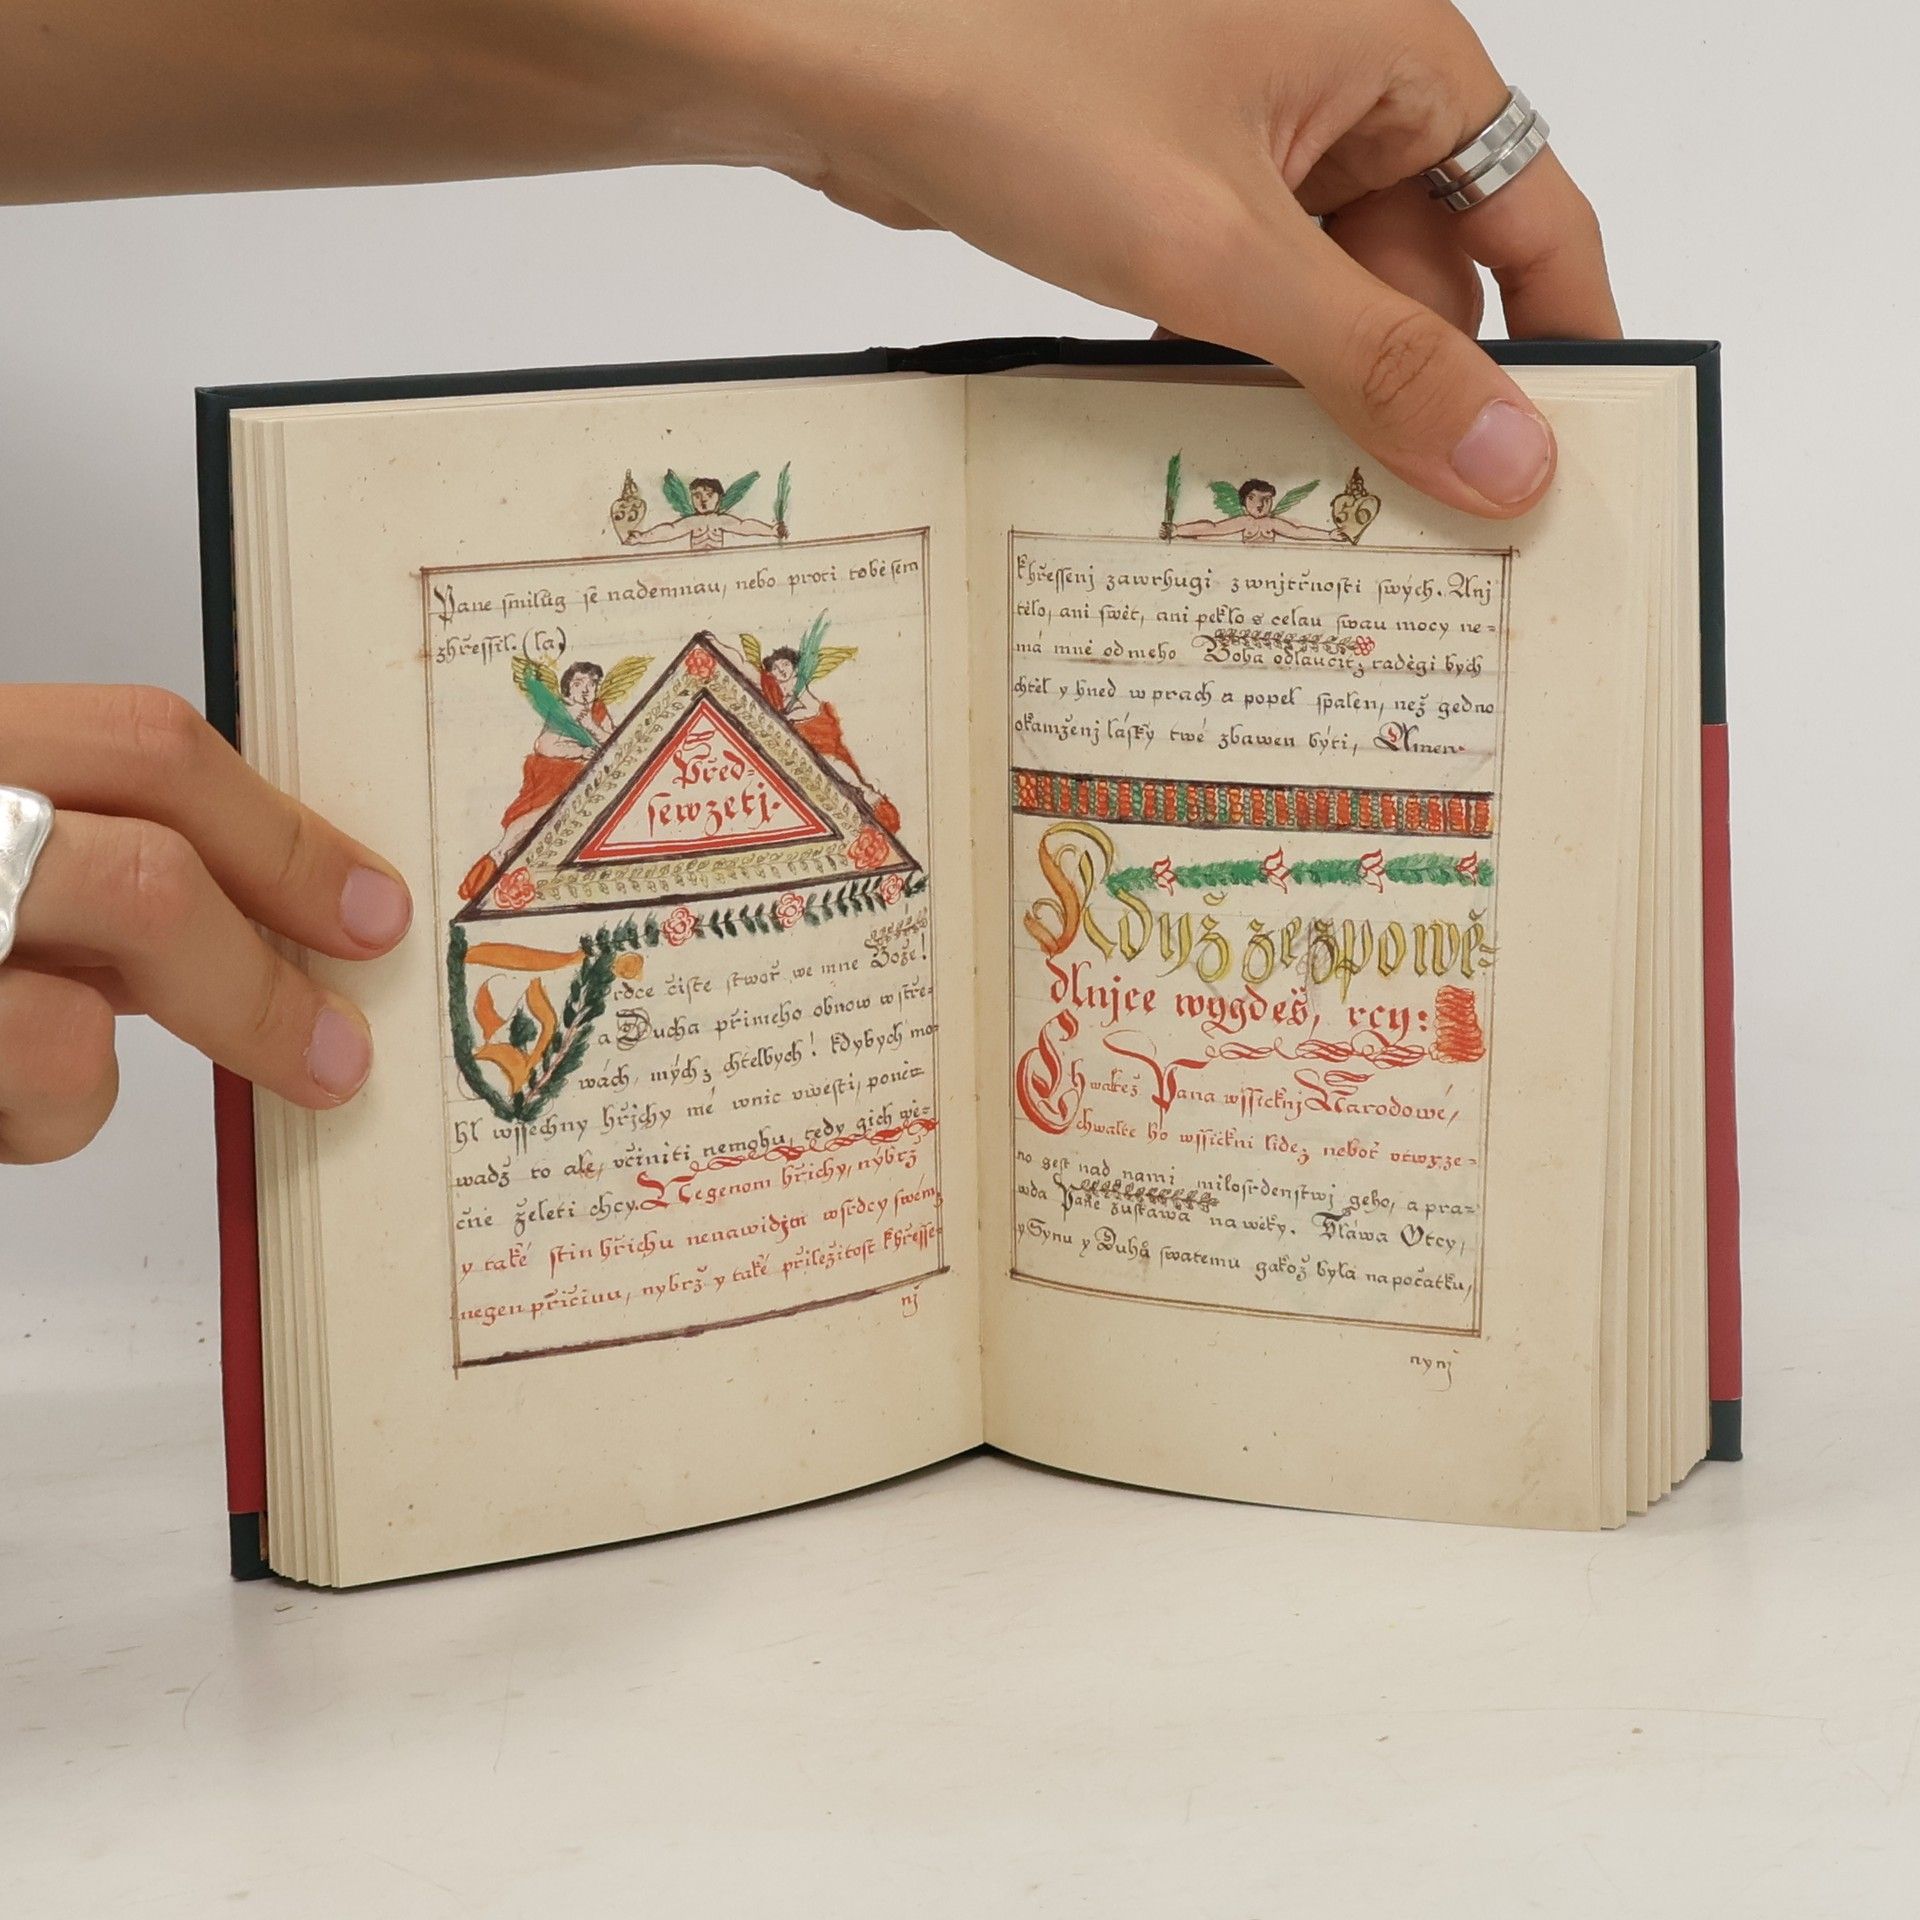 55
Pane smilůg se nademnau, nebo proti tobě sem
zhřessil. (la)
Před-
sewzetj.
Srdce čiste stwoř we mne Bože!
a Ducha přimeho obnow w stře-
wách, mých z chtelbych! kdybych mo-
hl wssechny hřjchy mé wnic vwesti, poněw
wadž to ale, včiniti nemohu, tedy gich wě-
čně želeti chcy. Negenom hřichy, nýbrž
y také stin hřichu nenawidjm w srdcy swém,
negen přičinu, nybrž y také přiležitost k hřesse-
nj
56
k hřessenj zawrhugi z wnjtřnosti swých. Anj
tělo, ani swět, ani peklo s celau swau mocy ne-
má mně od meho Boha odlaučit, raděgi bych
chtěl y hned w prach a popel spálen, než gedno
okamženj lásky twé zbawen býti, Amen.
Když ze zpowě-
dlnjce wygdeš, rcy:
Chwalež Pana wssicknj Narodowé,
Chwalte ho wssickni lide, neboť vtwrze-
no gest nad nami milosrdenstwj geho, a pra-
wda Páně zustáwá na wěky. Sláwa Otcy,
y Synu y Duhů swatemu gakož byla na počatku,
nynj